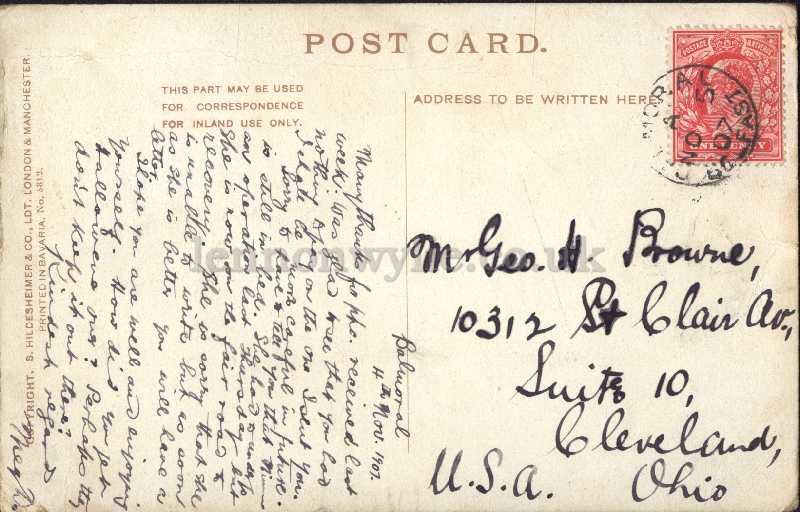 POST CARD.
THIS PART MAY BE USED
FOR CORRESPONDENCE
FOR INLAND USE ONLY.
ADDRESS TO BE WRITTEN HERE
COPYRIGHT, S. HILDESHEIMER & CO., LDT. LONDON & MANCHESTER.
PRINTED IN BAVARIA, No. 5812.
POSTAGE & REVENUE
ONE PENNY
BALMORAL
A
NO 5
07
BELFAST
Balmoral
4th Nov. 1907.
Many thanks for ppc. received last
week. Was glad to see that you had
nothing on the one I sent you.
I shall be more careful in future.
Sorry to have to tell you that Mim
is still in bed. She had to undergo
an operation last Thursday but
she is now on the fair road to
recovery. She is sorry that she
is unable to write but as soon
as she is better you will have a
letter.
Hope you are well and enjoying
yourself. How did you get
Halloween over? Perhaps they
don't keep it out there?
Kindest regards
Mr Geo. H. Browne,
10312 St Clair Av.,
Suite 10,
Cleveland,
Ohio
U.S.A.
lennonwylie.co.uk